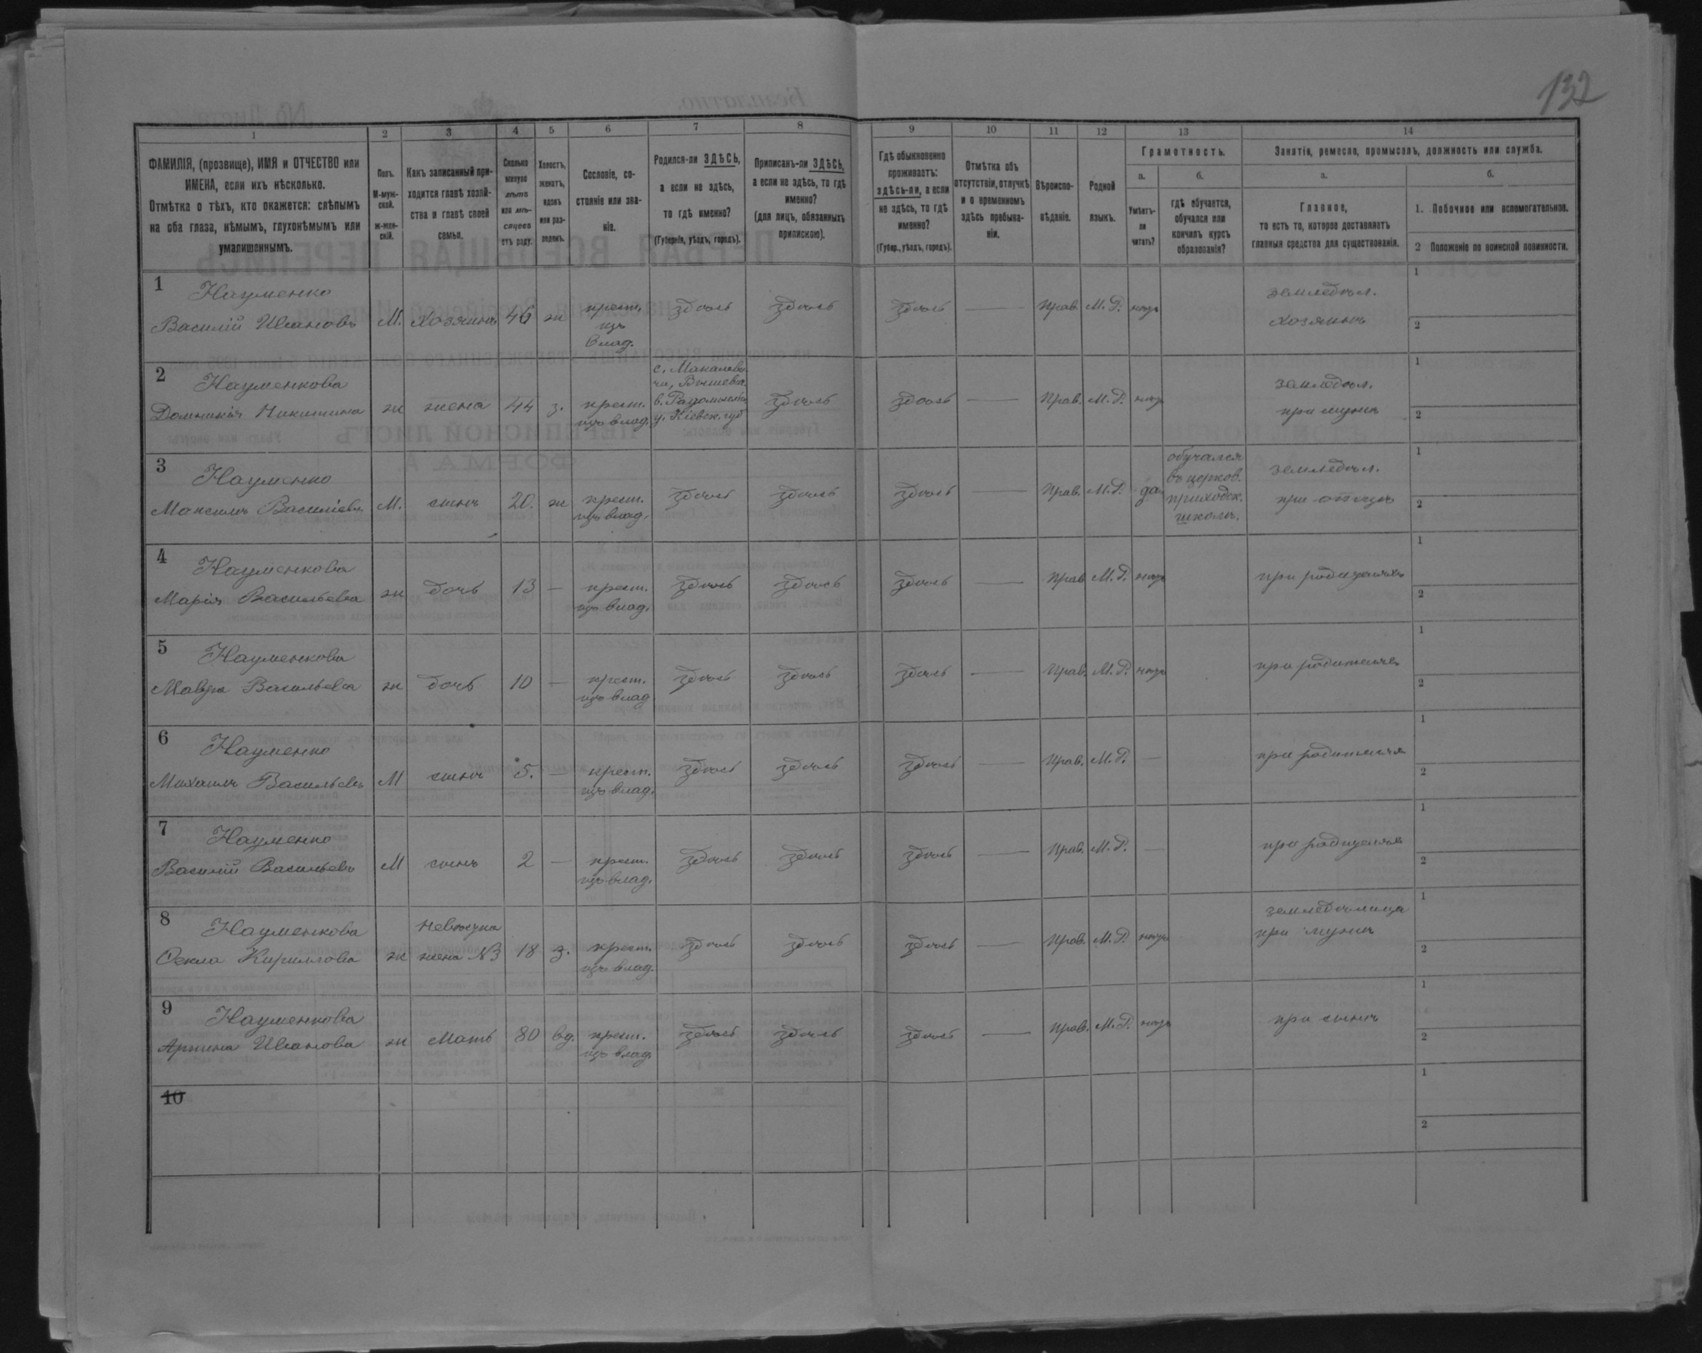 132
1 2 3 4 5 6 7 8 9 10 11 12 13 14
ФАМИЛІЯ, (прозвище), ИМЯ и ОТЧЕСТВО или
ИМЕНА, если ихъ нѣсколько.
Отмѣтка о тѣхъ, кто окажется: слѣпымъ
на оба глаза, нѣмымъ, глухонѣмымъ или
умалишеннымъ.
Полъ.
М-муж-
ской.
Ж-жен-
скій.
Какъ записанный при-
ходится главѣ хозяй-
ства и главѣ своей
семьи.
Сколько
минуло
лѣтъ
или мѣ-
сяцевъ
отъ роду.
Холостъ,
женатъ,
вдовъ
или раз-
веденъ.
Сословіе, со-
стояніе или зва-
ніе.
Родился-ли ЗДѢСЬ,
а если не здѣсь,
то гдѣ именно?
(Губернія, уѣздъ, городъ).
Приписанъ-ли ЗДѢСЬ,
а если не здѣсь, то гдѣ
именно?
(для лицъ, обязанныхъ
припискою).
Гдѣ обыкновенно
проживаетъ:
здѣсь-ли, а если
не здѣсь, то гдѣ
именно?
(Губер., уѣздъ, городъ).
Отмѣтка объ
отсутствіи, отлучкѣ
и о временномъ
здѣсь пребыва-
ніи.
Вѣроиспо-
вѣданіе.
Родной
языкъ.
Грамотность.
а.
Умѣетъ-
ли
читать?
б.
гдѣ обучается,
обучался или
кончилъ курсъ
образованія?
Занятіе, ремесло, промыселъ, должность или служба.
а.
Главное,
то есть то, которое доставляетъ
главныя средства для существованія.
б.
1. Побочное или вспомогательное.
2 Положеніе по воинской повинности.
1 Науменко
Василій Ивановъ М. Хозяинъ 46 ж крест.
изъ
влад. здѣсь здѣсь здѣсь — Прав. М.Р. нѣтъ земледѣл.
хозяинъ 1
2
2 Науменкова
Домникія Никитина ж жена 44 з. крест.
изъ влад. здѣсь здѣсь — Прав. М.Р. нѣтъ земледѣл.
при мужѣ 1
2
3 Науменко
Максимъ Василіевъ М. сынъ 20. ж крест.
изъ влад. здѣсь здѣсь здѣсь — Прав. М.Р. да обучался
въ церков.
приходск.
школѣ. земледѣл.
при отцѣ 1
2
4 Науменкова
Марія Васильева ж дочь 13 — крест.
изъ влад. здѣсь здѣсь здѣсь — Прав. М.Р. нѣтъ при родителяхъ 1
2
5 Науменкова
Мавра Васильева ж дочь 10 — крест.
изъ влад здѣсь здѣсь здѣсь — Прав. М.Р. нѣтъ при родителяхъ 1
2
6 Науменко
Михаилъ Васильевъ М сынъ 5. — крест.
изъ влад. здѣсь здѣсь здѣсь — Прав. М.Р. — при родителяхъ 1
2
7 Науменко
Василій Васильевъ М сынъ 2 — крест.
изъ влад. здѣсь здѣсь здѣсь — Прав. М.Р. — при родителяхъ 1
2
8 Науменкова
Ѳекла Кириллова ж невѣстка
жена №3 18 з. крест.
изъ влад. здѣсь здѣсь здѣсь — Прав. М.Р. нѣтъ земледѣлица
при мужѣ 1
2
9 Науменкова
Арпина Иванова ж мать 80 вд. крест.
изъ влад. здѣсь здѣсь здѣсь — Прав. М.Р. нѣтъ при сынѣ 1
2
10 1
2